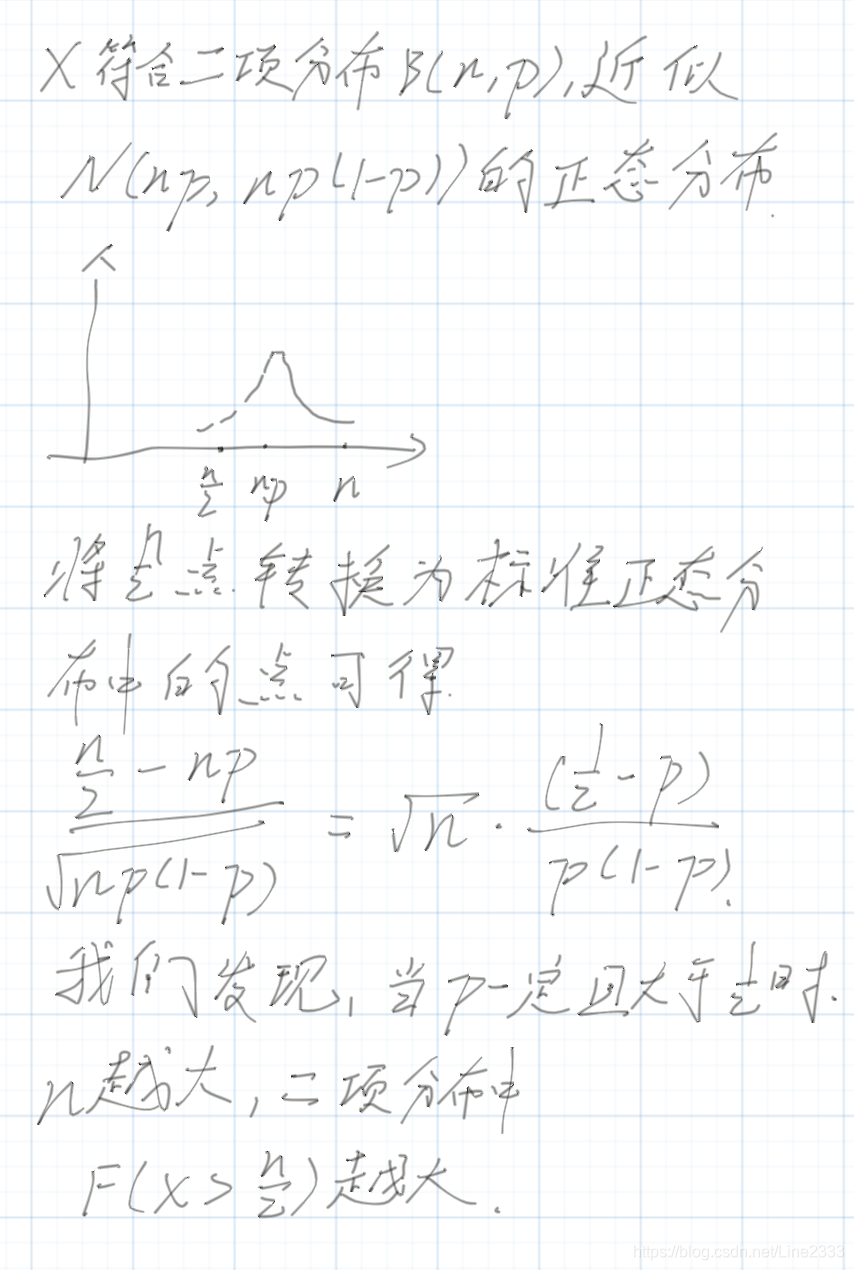 X符合二项分布B(n,p),近似
N(np, np(1-p))的正态分布.
n/2 np n
将n/2点转换为标准正态分
布中的点可得.
(n/2 - np)/√(np(1-p)) = √n · (1/2 - p)/(p(1-p)).
我们发现,当p一定且大于1/2时.
n越大,二项分布中
F(x > n/2)越大.
https://blog.csdn.net/Line2333